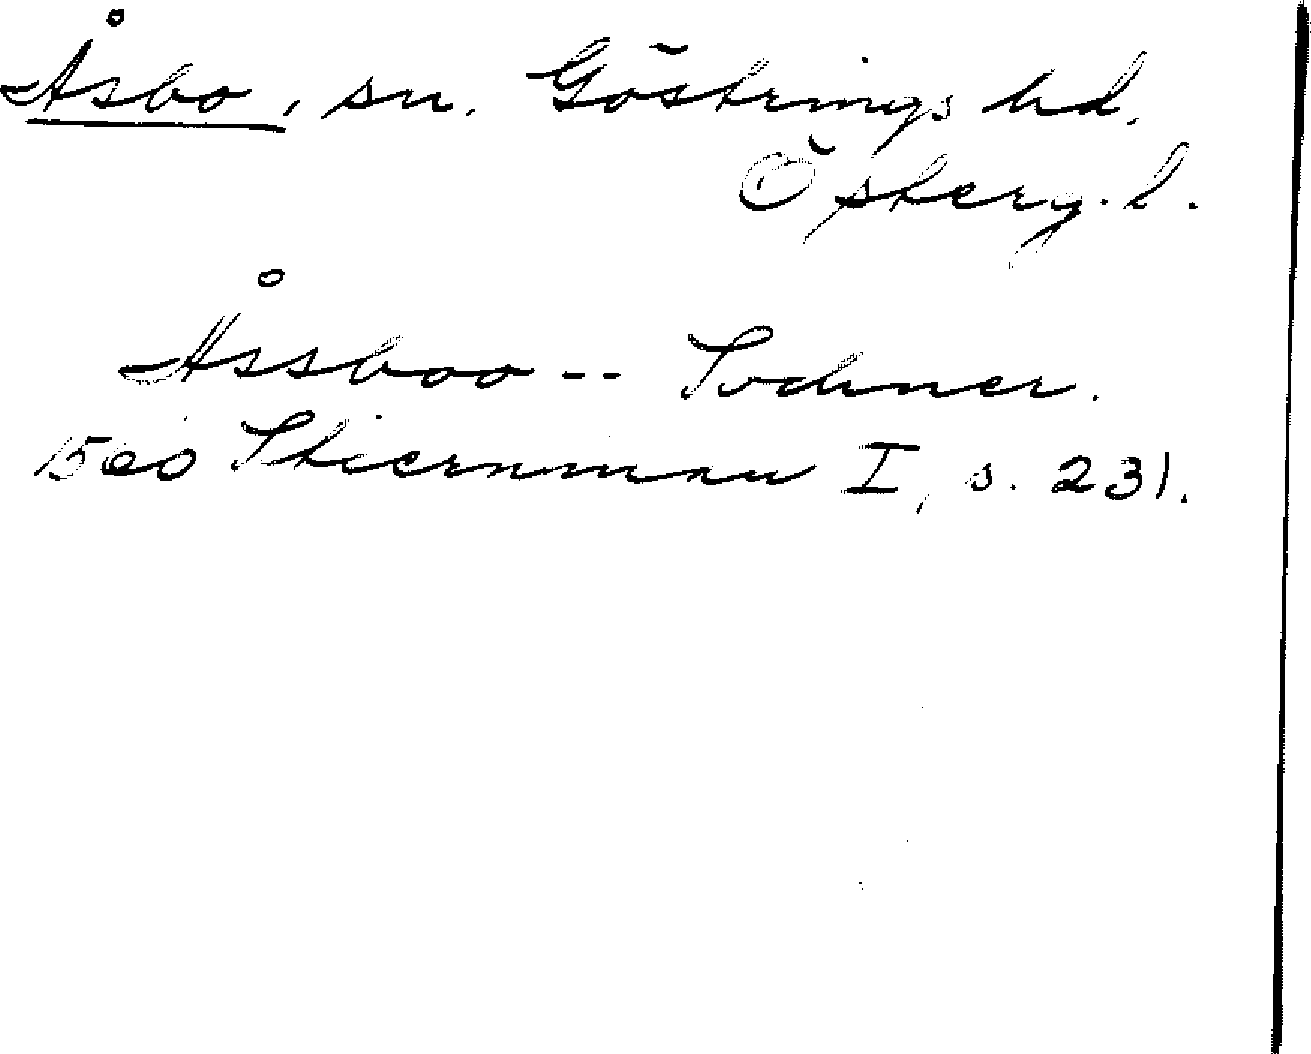 Åsbo, sn. Göstrings hd.
Österg. l.
Åssboo -- Sochner.
1560 Stiernman I, s. 231.